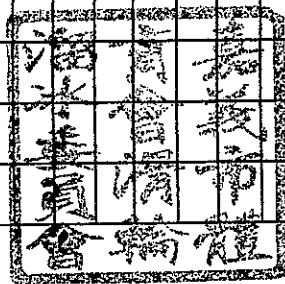 嘉義市體
育會滑輪
溜冰委員會